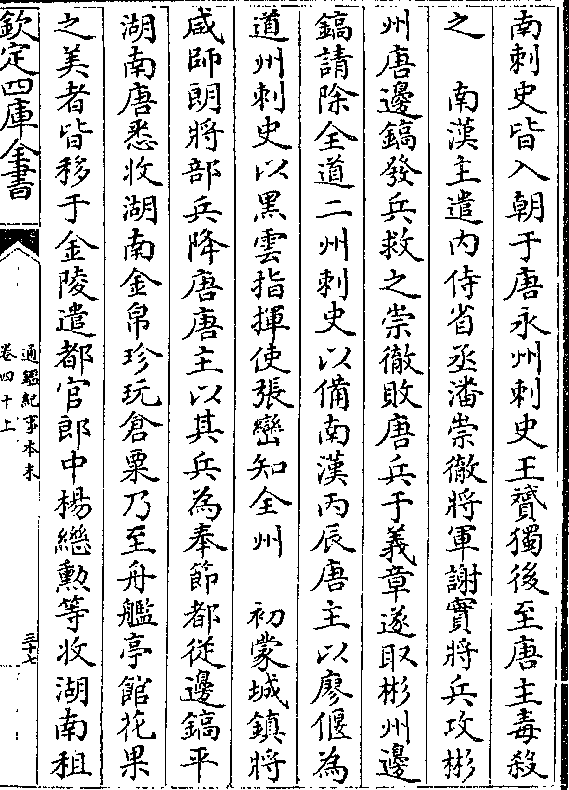 南刺史皆入朝于唐永州刺史王贇獨後至唐主毒殺
之　南漢主遣内侍省丞潘崇徹將軍謝貫將兵攻郴
州唐邊鎬發兵救之崇徹敗唐兵于義章遂取郴州邊
鎬請除全道二州刺史以備南漢丙辰唐主以廖偃為
道州刺史以黑雲指揮使張巒知全州　初蒙城鎮將
咸師朗將部兵降唐唐主以其兵為奉節都從邊鎬平
湖南唐悉收湖南金帛珍玩倉粟乃至舟艦亭館花果
之美者皆移于金陵遣都官郎中楊繼勲等收湖南租
欽定四庫全書
通鑑紀事本末
卷四十上
三十七